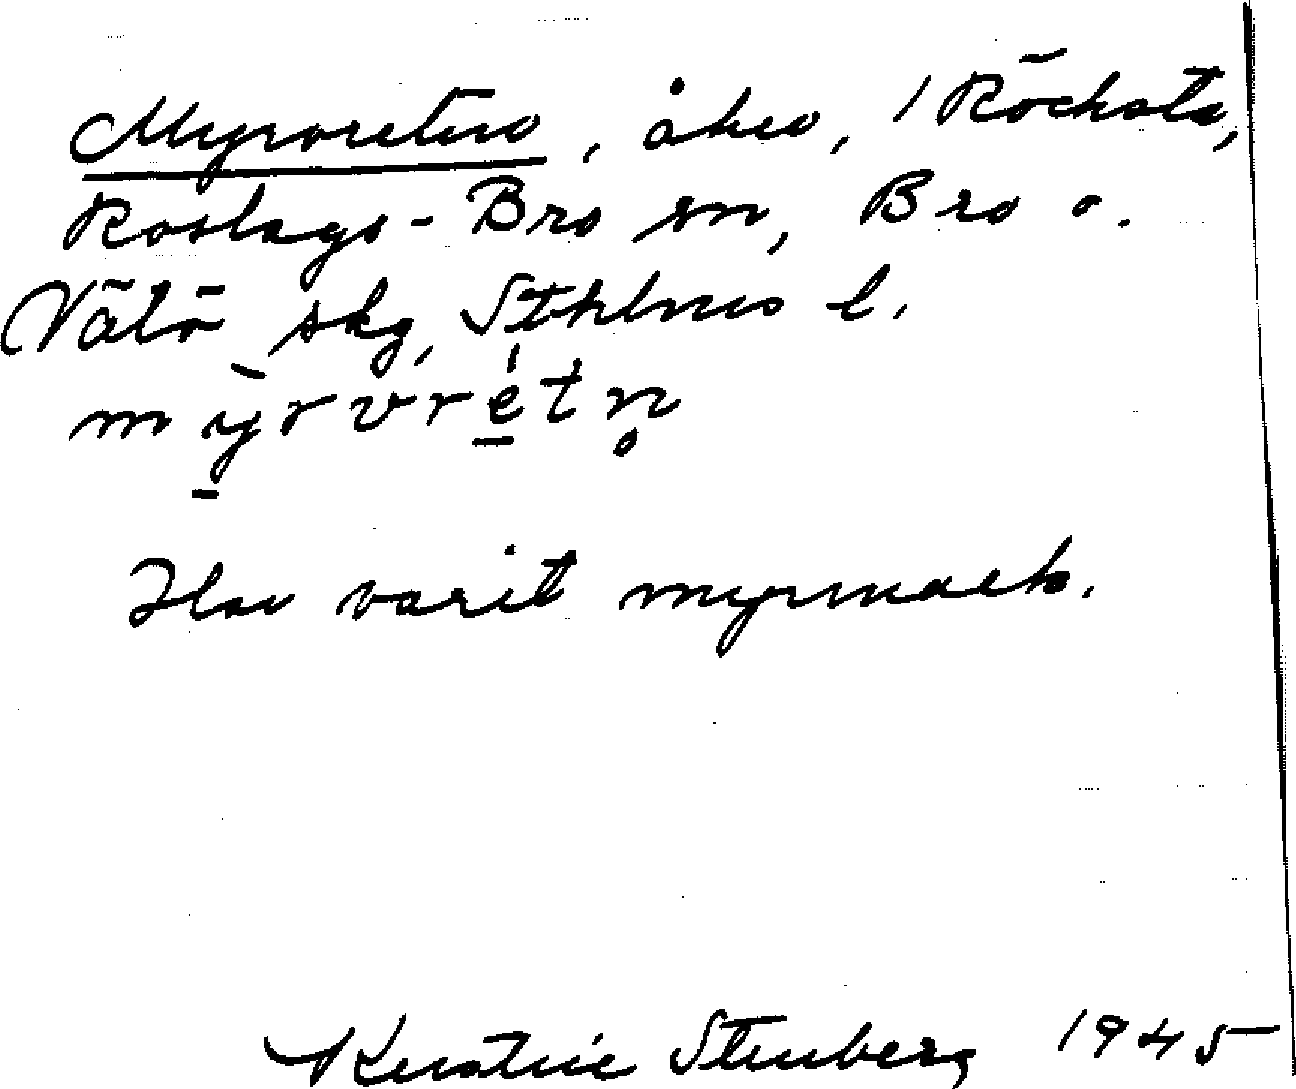 Myrvreten, åker, 1 Röcksta,
Roslags-Bro sn, Bro o.
Vätö skg, Sthlms l.
mỳrvrétn̥
Har varit myrmark.
Kerstin Stenberg 1945